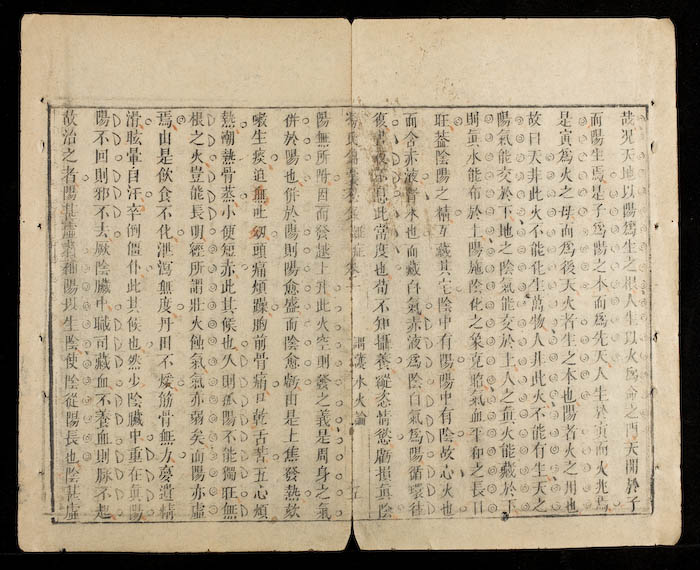 哉況天地以陽爲生之根人生以火爲命之門天開於子
而陽生焉是子爲陽之本而爲先天人生於寅而火兆焉
是寅爲火之母而爲後天火者生之本也陽者火之用也
故曰天非此火不能化生萬物人非此火不能有生天之
陽氣能交於下地之陰氣能交於上人之眞火能藏於下
則眞水能布於上陽施陰化之象克昭氣血平和之長日
旺益陰陽之精互藏其宅陰中有陽陽中有陰故心火也
而含赤液腎水也而藏白氣赤液爲陰白氣爲陽循環往
復晝夜不息此常度也苟不知攝養縱恣情慾虧損眞陰
馮氏錦囊秘錄雜症 卷一 調護水火論 五
陽無所附因而發越上升此火空則發之義是周身之氣
併於陽也併於陽則陽愈盛而陰愈虧由是上焦發熱欬
嗽生痰迫血吐衂頭痛煩躁胸前骨痛口乾舌苦五心煩
熱潮熱骨蒸小便短赤此其候也久則孤陽不能獨旺無
根之火豈能長明經所謂壯火蝕氣氣亦弱矣而陽亦虛
焉由是飲食不化泄瀉無度丹田不煖筋骨無力夢遺精
滑眩暈自汗卒倒僵仆此其候也然少陰臟中重在眞陽
陽不回則邪不去厥陰臟中職司藏血不養血則脉不起
故治之者陽甚虛者補陽以生陰使陰從陽長也陰甚虛